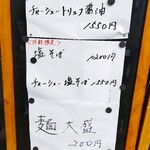 チャーシュートリュフ醤油
1550円
<数量限定>
塩そば
1200円
チャーシュー塩そば 1550円
麺大盛
200円